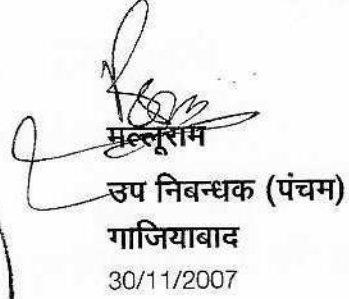 मल्लूराम
उप निबन्धक (पंचम)
गाजियाबाद
30/11/2007